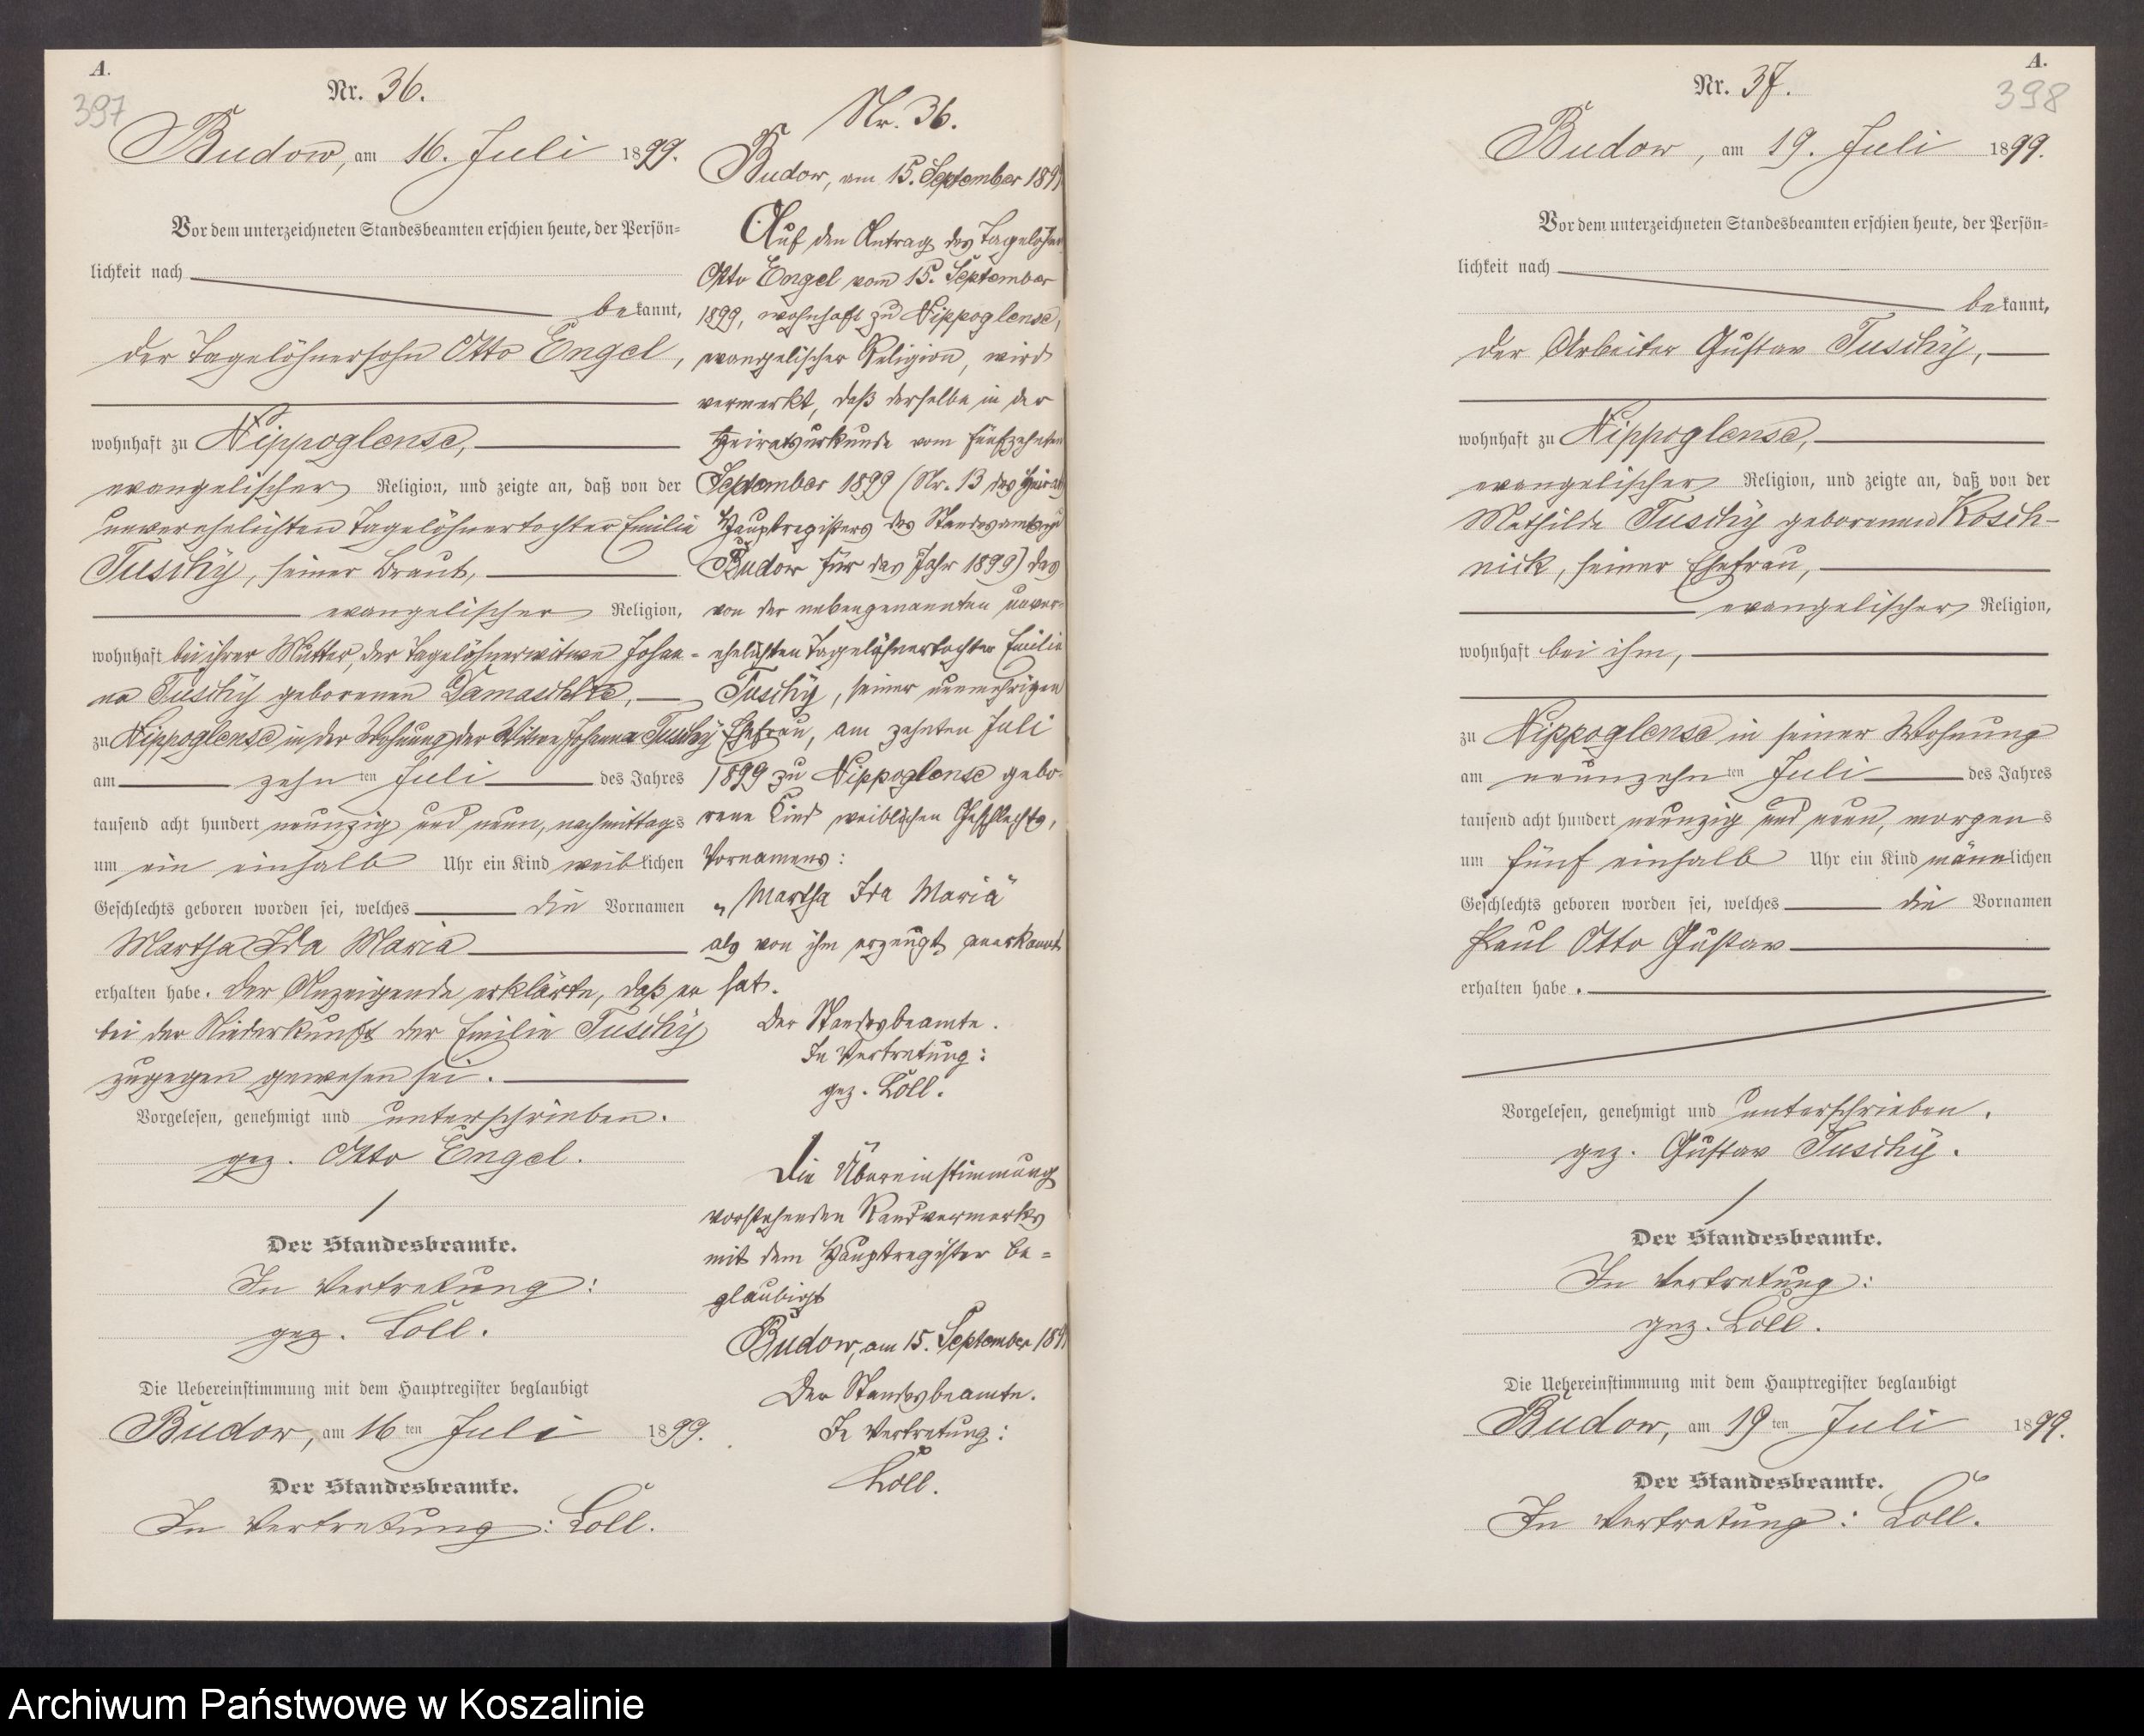 A.
397
Nr. 36.
Budow, am 16. Juli 1899.
Vor dem unterzeichneten Standesbeamten erschien heute, der Persön=
lichkeit nach
bekannt,
der Tagelöhnersohn Otto Engel,
wohnhaft zu Nippoglense,
evangelischer Religion, und zeigte an, daß von der
unverehelichten Tagelöhnertochter Emilie
Tuschÿ, seiner Braut,
evangelischer Religion,
wohnhaft bei ihrer Mutter, der Tagelöhnerwitwe Johan-
na Tuschÿ geborenen Damaschke,
zu Nippoglense in der Wohnung der Witwe Johanna Tuschÿ
am zehnten Juli des Jahres
tausend acht hundert neunzig und neun, nachmittags
um ein einhalb Uhr ein Kind weiblichen
Geschlechts geboren worden sei, welches die Vornamen
Martha Ida Maria
erhalten habe. Der Anzeigende erklärte, daß er
bei der Niederkunft der Emilie Tuschÿ
zugegen gewesen sei.
Vorgelesen, genehmigt und unterschrieben.
gez. Otto Engel.
Der Standesbeamte.
In Vertretung:
gez. Loll.
Die Uebereinstimmung mit dem Hauptregister beglaubigt
Budow, am 16ten Juli 1899.
Der Standesbeamte.
In Vertretung: Loll.
Nr. 36.
Budow, am 15. September 189
Auf den Antrag des Tagelöhner
Otto Engel vom 15. September
1899, wohnhaft zu Nippoglense,
evangelischer Religion, wird
vermerkt, daß derselbe in der
Heiratsurkunde vom fünfzehnten
September 1899 (Nr. 13 des Heirats
Hauptregisters des Standesamts zu
Budow für das Jahr 1899) das
von der nebengenannten unver-
ehelichten Tagelöhnertochter Emilie
Tuschÿ, seiner nunmehrigen
Ehefrau, am zehnten Juli
1899 zu Nippoglense gebo-
rene Kind weiblichen Geschlechts,
Vornamens:
„Martha Ida Maria"
als von ihm erzeugt anerkannt
hat.
Der Standesbeamte.
In Vertretung:
gez. Loll.
Die Übereinstimmung
vorstehenden Randvermerks
mit dem Hauptregister be-
glaubigt
Budow, am 15. September 189
Der Standesbeamte.
In Vertretung:
Loll.
A.
398
Nr. 37.
Budow, am 19. Juli 1899.
Vor dem unterzeichneten Standesbeamten erschien heute, der Persön=
lichkeit nach
bekannt,
der Arbeiter Gustav Tuschÿ,
wohnhaft zu Nippoglense,
evangelischer Religion, und zeigte an, daß von der
Mathilde Tuschÿ geborenen Kosch-
nick, seiner Ehefrau,
evangelischer Religion,
wohnhaft bei ihm,
zu Nippoglense in seiner Wohnung
am neunzehnten Juli des Jahres
tausend acht hundert neunzig und neun, morgens
um fünf einhalb Uhr ein Kind männlichen
Geschlechts geboren worden sei, welches die Vornamen
Paul Otto Gustav
erhalten habe.
Vorgelesen, genehmigt und unterschrieben.
gez. Gustav Tuschÿ.
Der Standesbeamte.
In Vertretung:
gez. Loll.
Die Uebereinstimmung mit dem Hauptregister beglaubigt
Budow, am 19ten Juli 1899.
Der Standesbeamte.
In Vertretung: Loll.
Archiwum Państwowe w Koszalinie